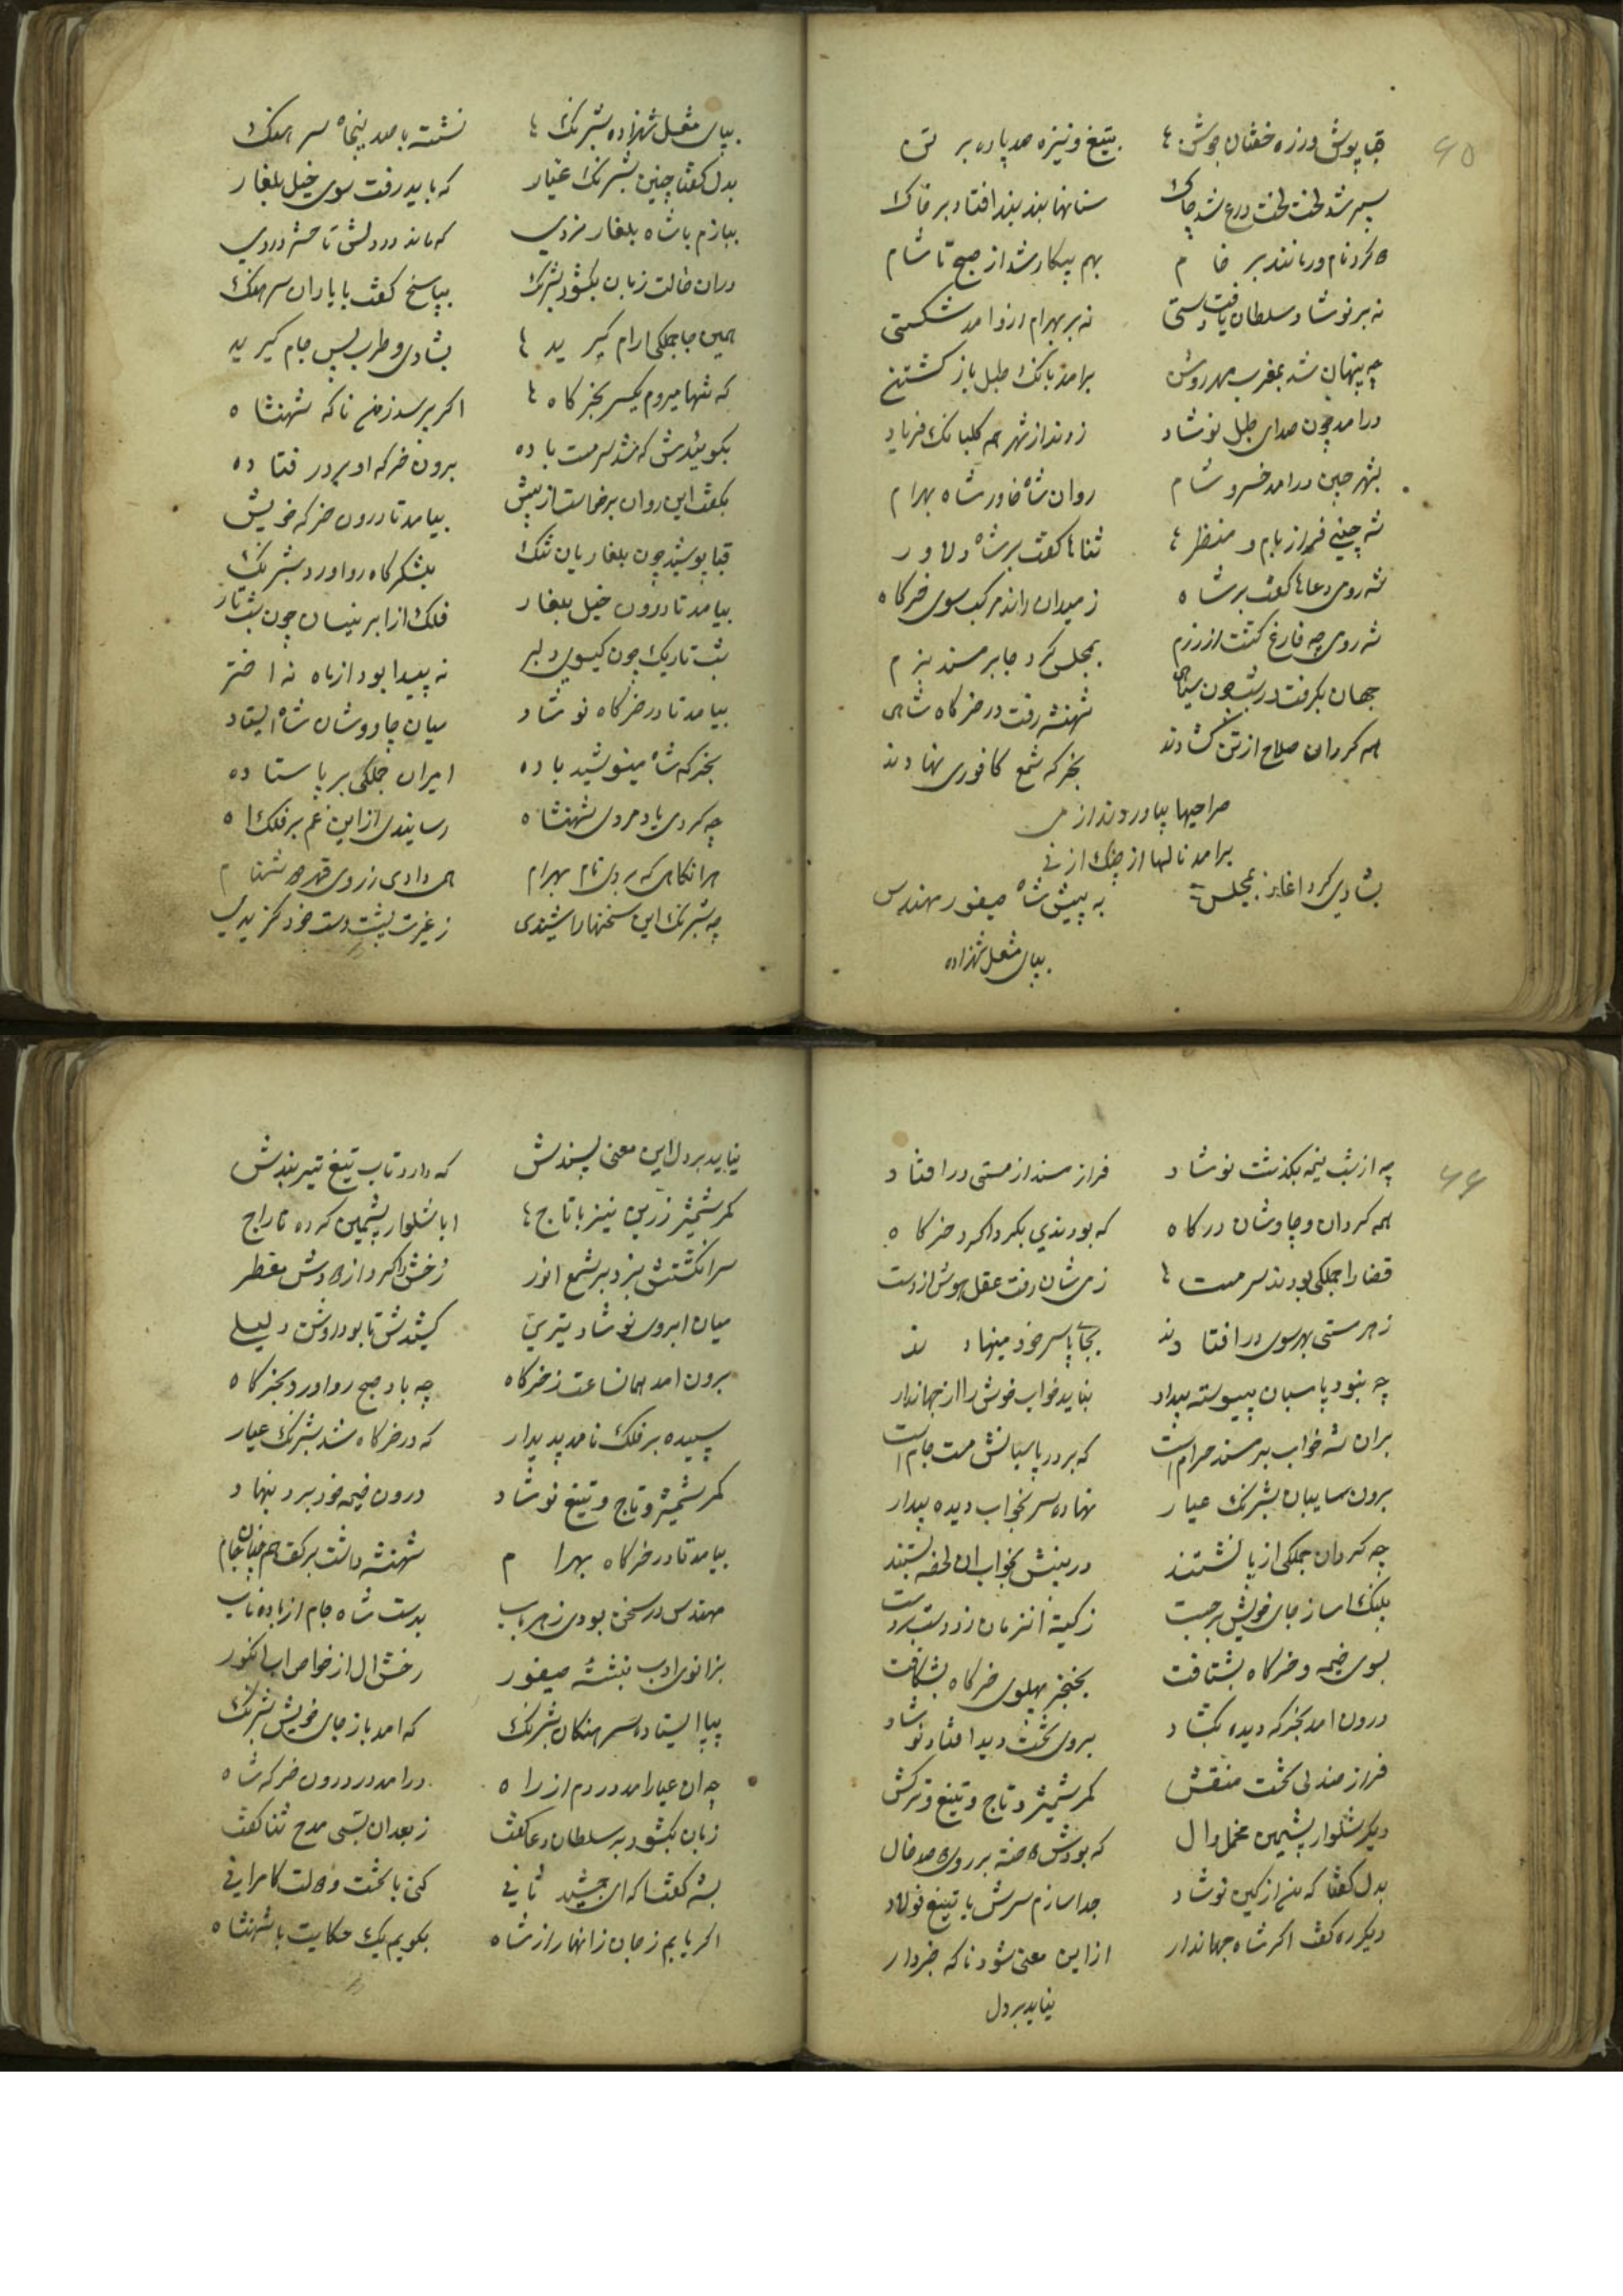 ۶۵
قبا پوش و زره خفتان جوش ها بتیغ و نیزه صد پاره بر تن
سپر شد لخت لخت درع شد چاک سنانها بند بند افتاد بر خاک
بهم پیکار شد از صبح تا شام
نه بر نوشاد سلطان یافت دستی نه بر بهرام از وامد شکستی
چه پنهان شد بمغرب مهر روشن برامد بانک طبل باز کشتن
درامد چون صدای طبل نوشاد زدند از شهر هم کلبانک فریاد
بشهر چین درامد خسرو شام روان شاه خاور شاه بهرام
شه چینی فراز بام و منظر ها ثناها کفت بر شاه دلاور
شه روی دعاها کفت بر شاه ز میدان راند مرکب سوی خرکاه
شه روی چه فارغ کشت از رزم بمجلس کرد جا بر مسند بزم
جهان بکرفت در شب چون سیاهی شهنشه رفت در خرکاه شاهی
همه کردان صلاح از تن کشادند بخرکه شمع کافوری نهادند
صراحیها بیاوردند از می
برامد نالها از چنک از نی
بشادی کرد اغاز مجلس به پیش شاه صیفور مهندس
بپای مشعل شهزاده
بپای مشعل شهزاده بشرنک ها نشسته با صد پنجاه سرهنک
بدل کفتا چنین بشرنک عیار که باید رفت سوی خیل بلغار
ببازم با شاه بلغار نردی که ماند در دلش تا حشر دردی
دران حالت زبان بکشود بشرنک بپاسخ کفت با یاران سرهنک
همین جا جملکی ارام کیرید ها بشادی و طرب پس جام کیرید
که تنها میروم یکسر بخرکاه ها اکر پرسد ز من ناکه شهنشاه
بکوییدش که شد سرمست باده برون خرکه او بر در فتاده
بکفت این روان برخاست از پیش بیامد تا درون خرکه خویش
قبا پوشید چون بلغاریان تنک بلشکرکاه رو اورد بشرنک
بیامد تا درون خیل بلغار فلک از ابر نیسان چون شب تار
شب تاریک چون کیسوی دلبر نه پیدا بود از ماه نه اختر
بیامد تا در خرکاه نوشاد میان چاووشان شاه ایستاد
بخرکه شاه مینوشید باده امیران جملکی بر پا ستاده
چه کردی یاد مردی شهنشاه رسانیدی از این غم بر فلک اه
هرانکاهی که بردی نام بهرام همی دادی ز روی قهر دشنام
چه بشرنک این سخنها را شنیدی ز غیرت پشت دست خود کزیدی
۶۶
چه از شب نیمه بکذشت نوشاد فراز مسند از مستی درافتاد
همه کردان و چاوشان درکاه که بودندی بکرداکرد خرکاه
قضا را جملکی بودند سرمست ها ز می شان رفت عقل هوش از دست
ز هر مستی بهر سوی درافتادند بجای پا سر خود مینهادند
چه نبود پاسبان پیوسته بیدار نباید خواب خوش را از جهاندار
بران شه خواب بر مسند حرام است که بر در پاسبانش مست جام است
برون سایبان بشرنک عیار نهاده سر بخواب دیده بیدار
چه کردان جملکی از پا نشستند
پلنک اسا ز جای خویش برجست ز کینه انزمان زد دست بر دست
بسوی خیمه و خرکاه بشتافت بخنجر پهلوی خرکاه بشکافت
درون امد بخرکه دیده بکشاد بروی تخت دید افتاد نوشاد
فراز صندلی تخت منقش کمر شمشیر و تاج و تیغ و ترکش
دیکر شلوار پشمین مخمل ال
بدل کفتا که من از کین نوشاد جدا سازم سرش با تیغ فولاد
دیکر ره کفت اکر شاه جهاندار ازاین معنی شود ناکه خبردار
نیاید بر دل
نیاید بر دل این معنی پسندش که دارد تاب تیغ تیر بندش
کمر شمشیر زرین نیز با تاج ها ابا شلوار پشمین کرده تاراج
سر انکشتش بزد بر شمع انور رخش را کرد از دودش مقطر
میان ابروی نوشاد تیری کشیدش تا بود روشن دلیلی
برون امد همانساعت ز خرکاه چه باد صبح رو اورد بخرکاه
سپیده بر فلک نامد پدیدار که در خرکاه شد بشرنک عیار
کمر شمشیر و تاج و تیغ نوشاد درون خیمه خود برد بنهاد
بیامد تا در خرکاه بهرام شهنشه داشت بر کف هم چنان جام
مهندس در سخن بودی ز هر باب بدست شاه جام از باده ناب
بزانوی ادب بنشسته صیفور رخش ال از خواص اب انکور
بپا ایستاده سرهنکان بشرنک که امد باز جای خویش بشرنک
چه ان عیار امد در دم از راه درامد در درون خرکه شاه
زبان بکشود بر سلطان دعا کفت ز بعد ان بسی مدح ثنا کفت
بشه کفتا که ای جمشید ثانی کنی با تخت دولت کامرانی
اکر یابم زمان زانهار از شاه بکویم یک حکایت با شهنشاه